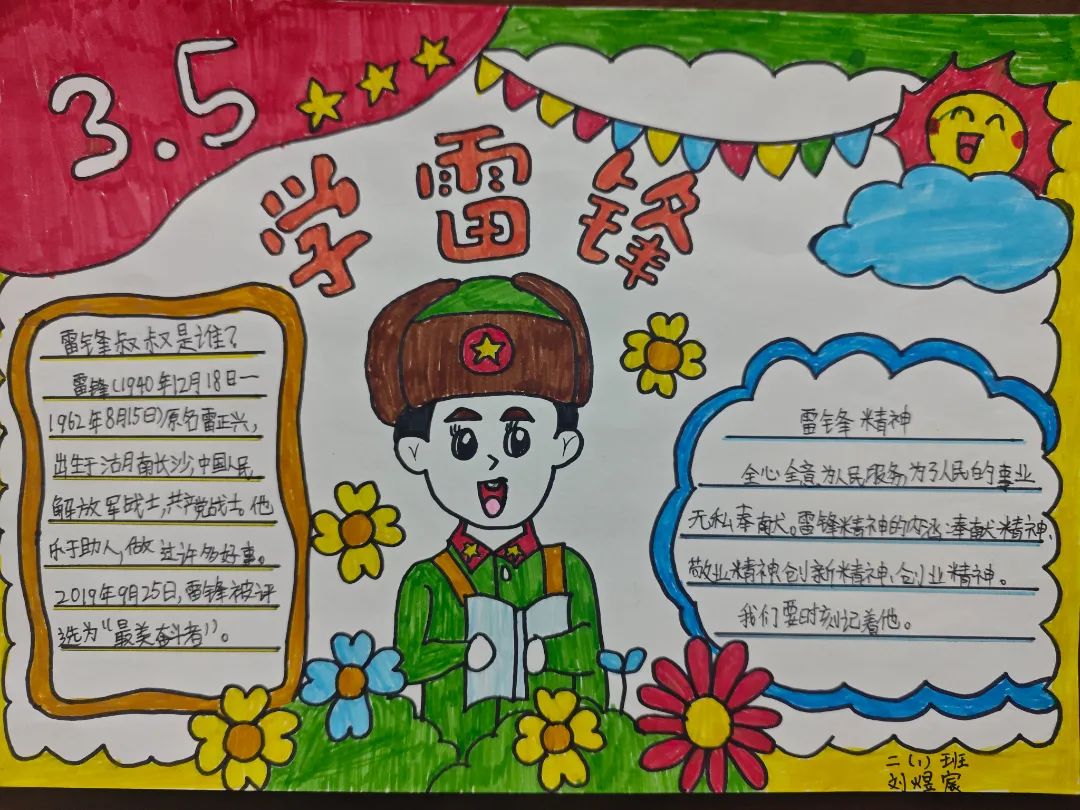 3.5
学雷锋
雷锋叔叔是谁？
雷锋（1940年12月18日—
1962年8月15日）原名雷正兴，
出生于湖南长沙，中国人民
解放军战士，共产党战士。他
乐于助人，做过许多好事。
2019年9月25日，雷锋被评
选为“最美奋斗者”。
雷锋精神
全心全意为人民服务，为了人民的事业
无私奉献。雷锋精神的内涵：奉献精神、
敬业精神、创新精神、创业精神。
我们要时刻记着他。
二（1）班
刘煜宸